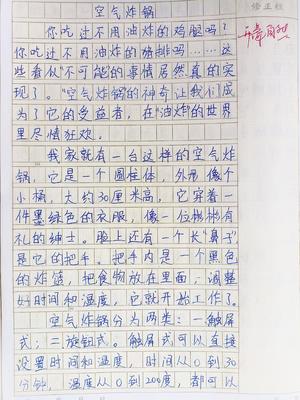 修正栏
空气炸锅
你吃过不用油炸的鸡腿吗?
你吃过不用油炸的猪排吗……这
些看似"不可能的事情居然真的实
现了。"空气炸锅的神奇让我们成
为了它的受益者,在"油炸"的世界
里尽情狂欢。
我家就有一台这样的空气炸
锅,它是一个圆柱体,外形像个
小桶,大约30厘米高,它穿着一
件墨绿色的衣服,像一位彬彬有
礼的绅士。脸上还有一个长"鼻子"
是它的把手。把手内是一个黑色
的炸篮,把食物放在里面,调整
好时间和温度,它就开始工作了。
空气炸锅分为两类:一触屏
式;二旋钮式。触屏式可以直接
设置时间和温度,时间从0到30
分钟,温度从0到200度,都可以